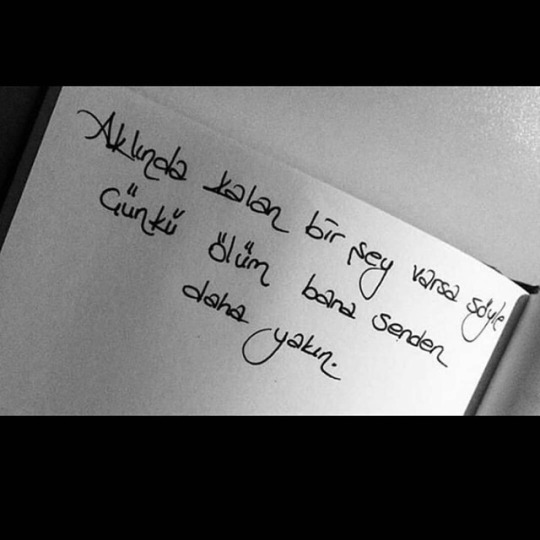 Aklında kalan bir şey varsa söyle
Çünkü ölüm bana senden
daha yakın.